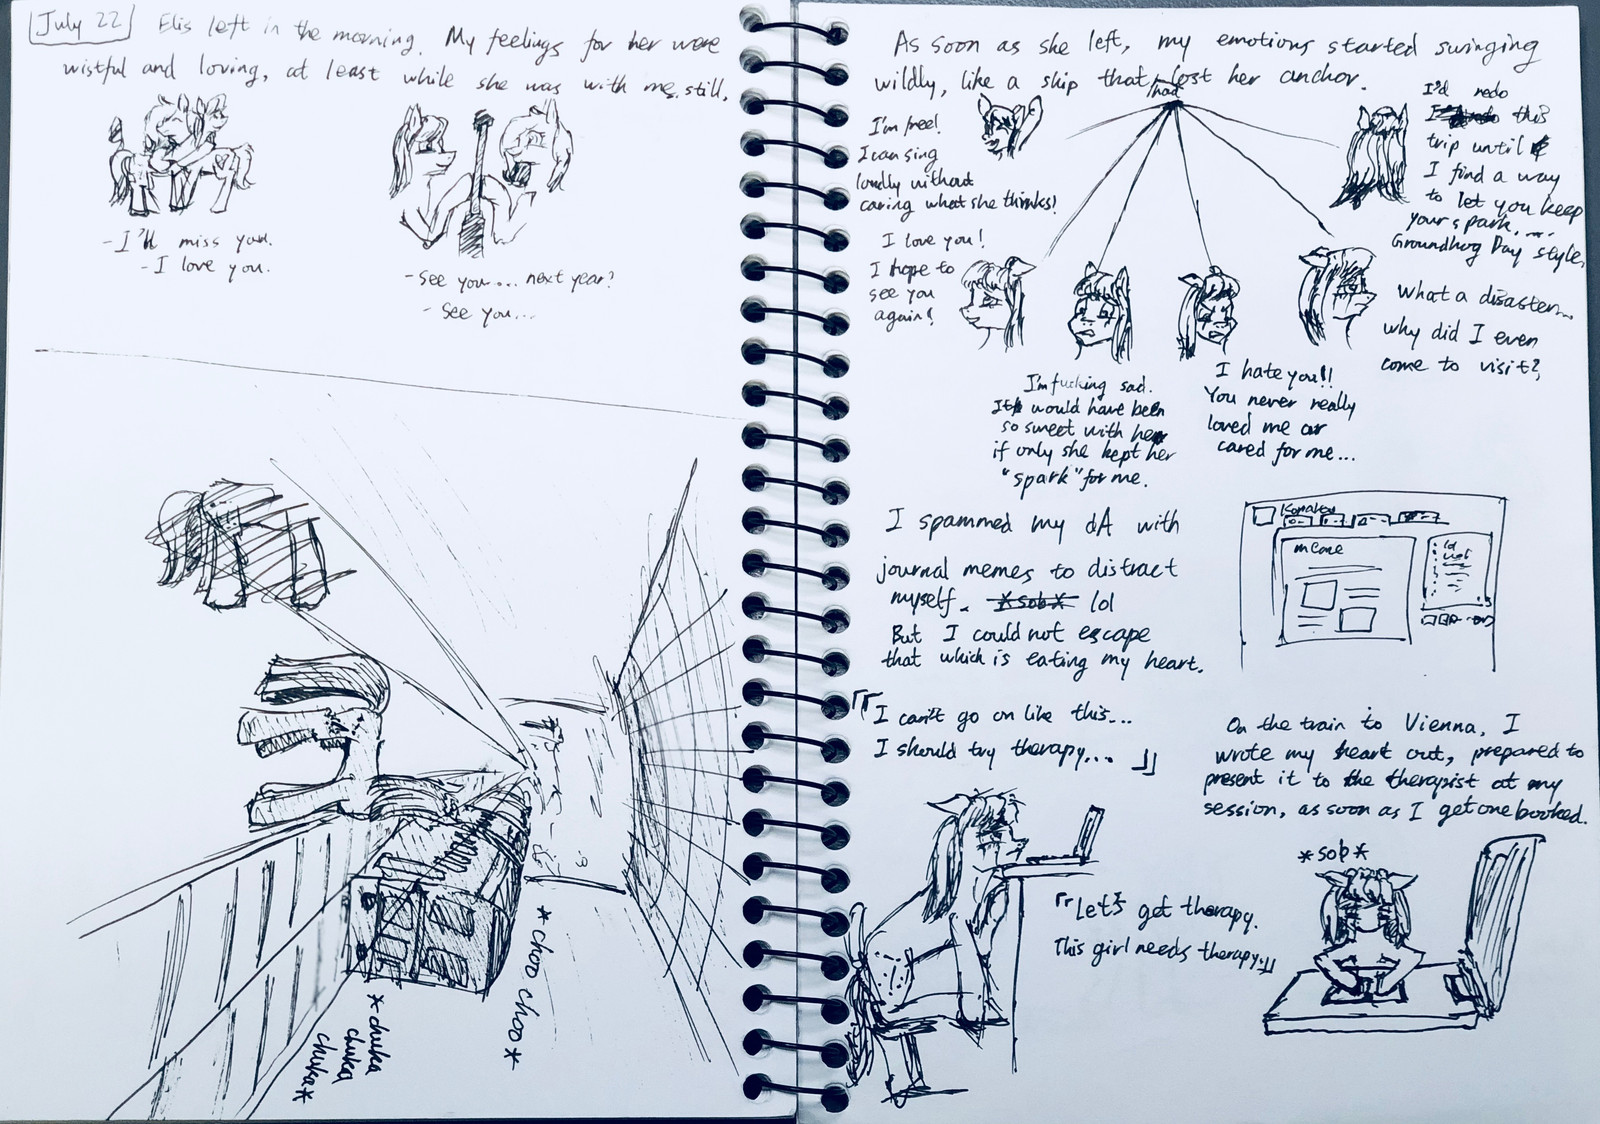 July 22
Elis left in the morning. My feelings for her were
wistful and loving, at least while she was with me still.
- I'll miss you.
- I love you.
- See you... next year?
- See you...
*choo choo*
*chuka
chuka
chuka*
As soon as she left, my emotions started swinging
wildly, like a ship that had lost her anchor.
I'm free!
I can sing
loudly without
caring what she thinks!
I love you!
I hope to
see you
again!
I'm fucking sad.
It would have been
so sweet with her
if only she kept her
"spark" for me.
I hate you!!
You never really
loved me or
cared for me...
What a disaster...
why did I even
come to visit?
I'd redo
this
trip until
I find a way
to let you keep
your spark, ...
Groundhog Day style.
I spammed my dA with
journal memes to distract
myself. *sob* lol
But I could not escape
that which is eating my heart.
「「I can't go on like this...
I should try therapy...」」
On the train to Vienna, I
wrote my heart out, prepared to
present it to the therapist at my
session, as soon as I get one booked.
「「Let's get therapy.
This girl needs therapy.」」
*sob*